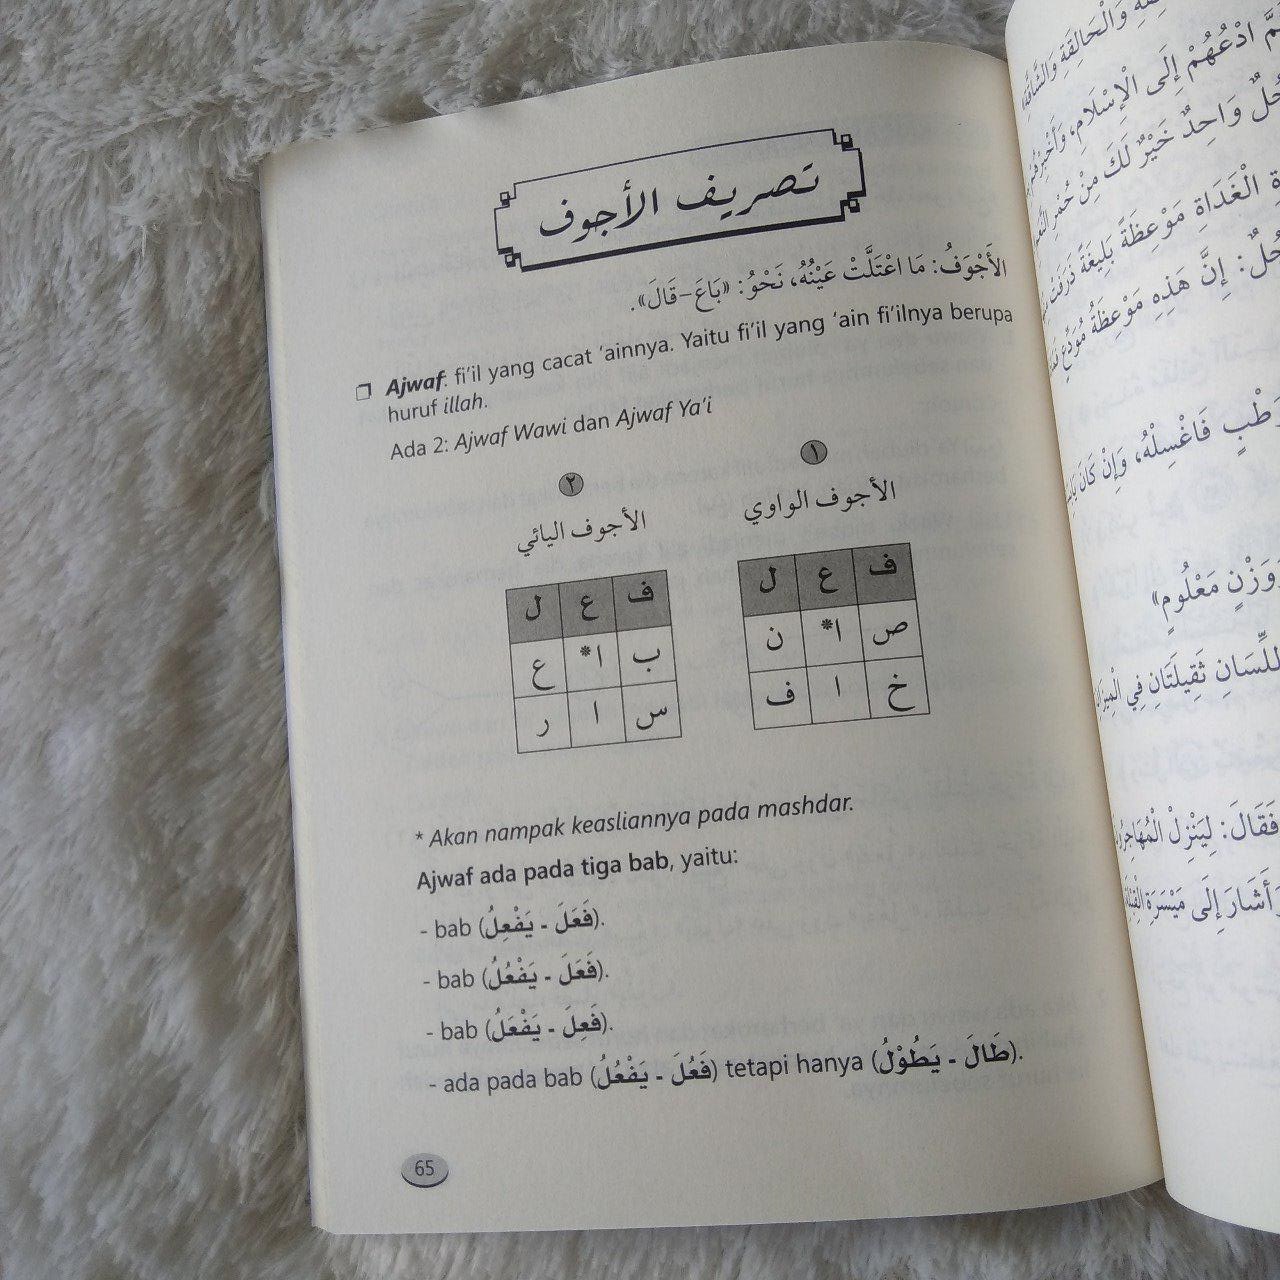 تصريف الأجوف
الأَجْوَفُ: مَا اعْتَلَّتْ عَيْنُهُ، نَحْوُ: «بَاعَ-قَالَ».
❒ Ajwaf: fi’il yang cacat ‘ainnya. Yaitu fi’il yang ‘ain fi’ilnya berupa
huruf illah.
Ada 2: Ajwaf Wawi dan Ajwaf Ya’i
١
الأجوف الواوي
ف ع ل
ص ا* ن
خ ا ف
٢
الأجوف اليائي
ف ع ل
ب ا* ع
س ا ر
* Akan nampak keasliannya pada mashdar.
Ajwaf ada pada tiga bab, yaitu:
- bab (فَعَلَ - يَفْعِلُ).
- bab (فَعَلَ - يَفْعُلُ).
- bab (فَعِلَ - يَفْعَلُ).
- ada pada bab (فَعُلَ - يَفْعُلُ) tetapi hanya (طَالَ - يَطُوْلُ).
65
وَالْحَالِقَةِ وَالشَّاقَّةِ
ادْعُهُمْ إِلَى الْإِسْلَامِ، وَأَخْبِرْهُمْ
وَاحِدٌ خَيْرٌ لَكَ مِنْ حُمْرِ
الْغَدَاةِ مَوْعِظَةً بَلِيغَةً ذَرَفَتْ
إِنَّ هَذِهِ مَوْعِظَةُ مُوَدِّعٍ
فَاغْسِلْهُ، وَإِنْ كَانَ
وَوَزْنٍ مَعْلُومٍ»
اللِّسَانِ ثَقِيلَتَانِ فِي
فَقَالَ: لِيَنْزِلْ
وَأَشَارَ إِلَى مَيْسَرَةِ